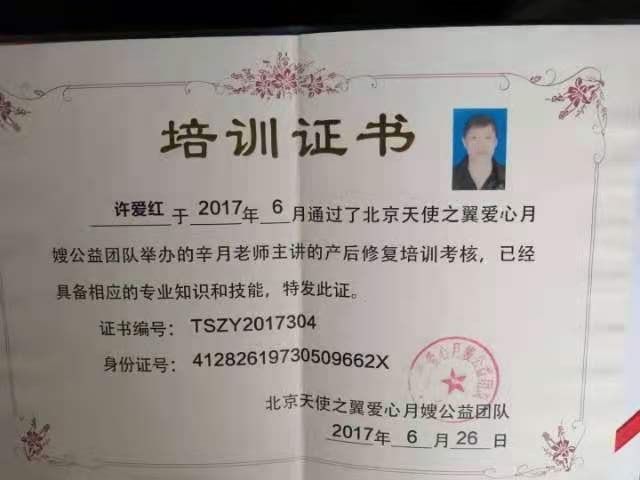 培训证书
许爱红于2017年6月通过了北京天使之翼爱心月
嫂公益团队举办的辛月老师主讲的产后修复培训考核，已经
具备相应的专业知识和技能，特发此证。
证书编号：TSZY2017304
身份证号：41282619730509662X
爱心月嫂公益团队
北京天使之翼爱心月嫂公益团队
2017年6月26日